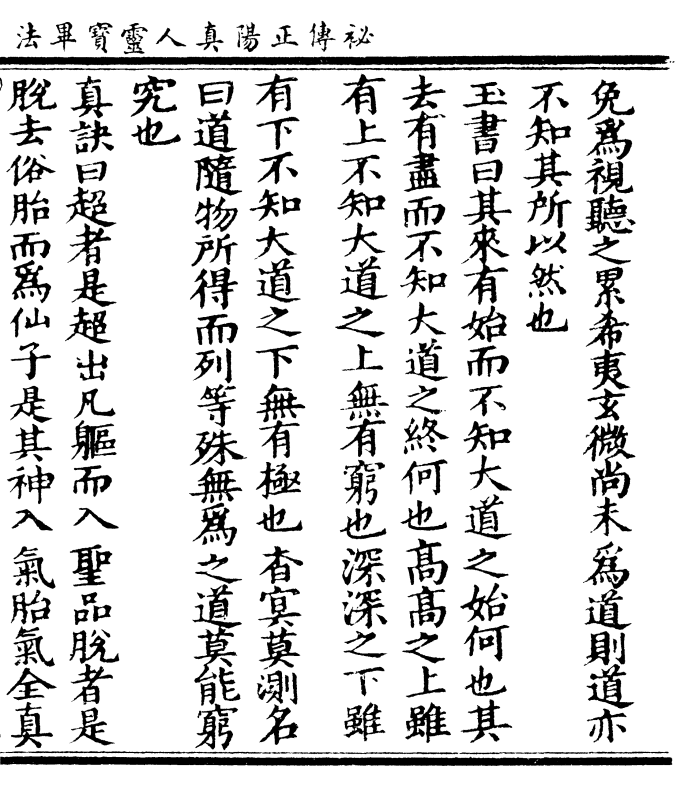 祕傳正陽真人靈寶畢法
免爲視聽之累希夷玄微尚未爲道則道亦
不知其所以然也
玉書曰其來有始而不知大道之始何也其
去有盡而不知大道之終何也高高之上雖
有上不知大道之上無有窮也深深之下雖
有下不知大道之下無有極也杳冥莫測名
曰道隨物所得而列等殊無爲之道莫能窮
究也
真訣曰超者是超出凡軀而入聖品脫者是
脫去俗胎而爲仙子是其神入氣胎氣全真